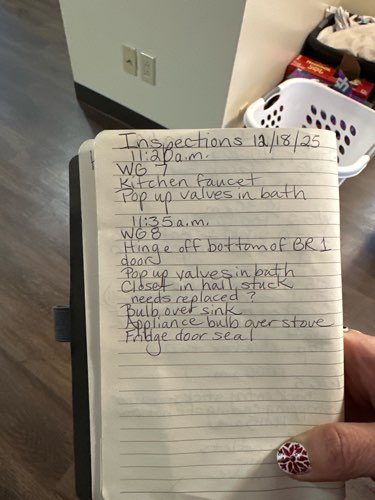 Inspections 12/18/25
11:20a.m.
WG 7
Kitchen faucet
Pop up valves in bath
11:35a.m.
WG8
Hinge off bottom of BR 1
door
Pop up valves in bath
Closet in hall, stuck
needs replaced?
Bulb over sink
Appliance bulb over stove
Fridge door seal